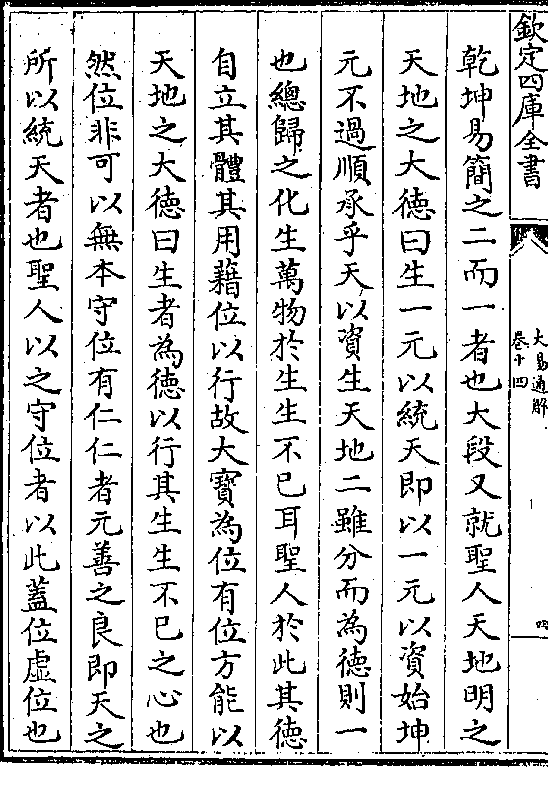 欽定四庫全書
大易通解
卷十四
四
乾坤易簡之二而一者也大段又就聖人天地明之
天地之大德曰生一元以統天即以一元以資始坤
元不過順承乎天以資生天地二雖分而為德則一
也總歸之化生萬物於生生不已耳聖人於此其德
自立其體其用藉位以行故大寶為位有位方能以
天地之大德曰生者為德以行其生生不已之心也
然位非可以無本守位有仁仁者元善之良即天之
所以統天者也聖人以之守位者以此蓋位虛位也